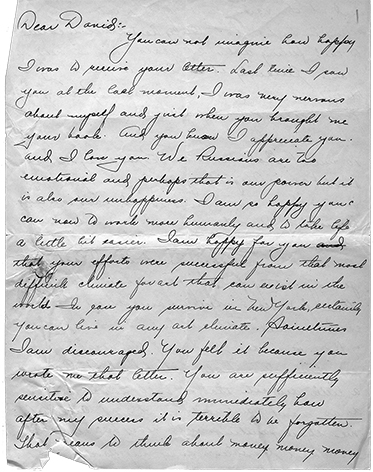 1
Dear David:-
You can not imagine how happy
I was to receive your letter. Last time I saw
you at the last moment, I was very nervous
about myself and just when you brought me
your book. And you know I appreciate you
and I love you. We Russians are too
emotional and perhaps that is our power but it
is also our unhappiness. I am so happy you
can now to work more humanly and to take life
a little bit easier. I am happy for you and
that your efforts were successful from that most
difficult climate for art that can exist in the
world. In case you survive in New York, certainly
you can live in any art climate. Sometimes
I am discouraged. You felt it because you
wrote me that letter. You are sufficiently
sensitive to understand immediately how
after my success it is terrible to be forgotten.
That means to think about money money money